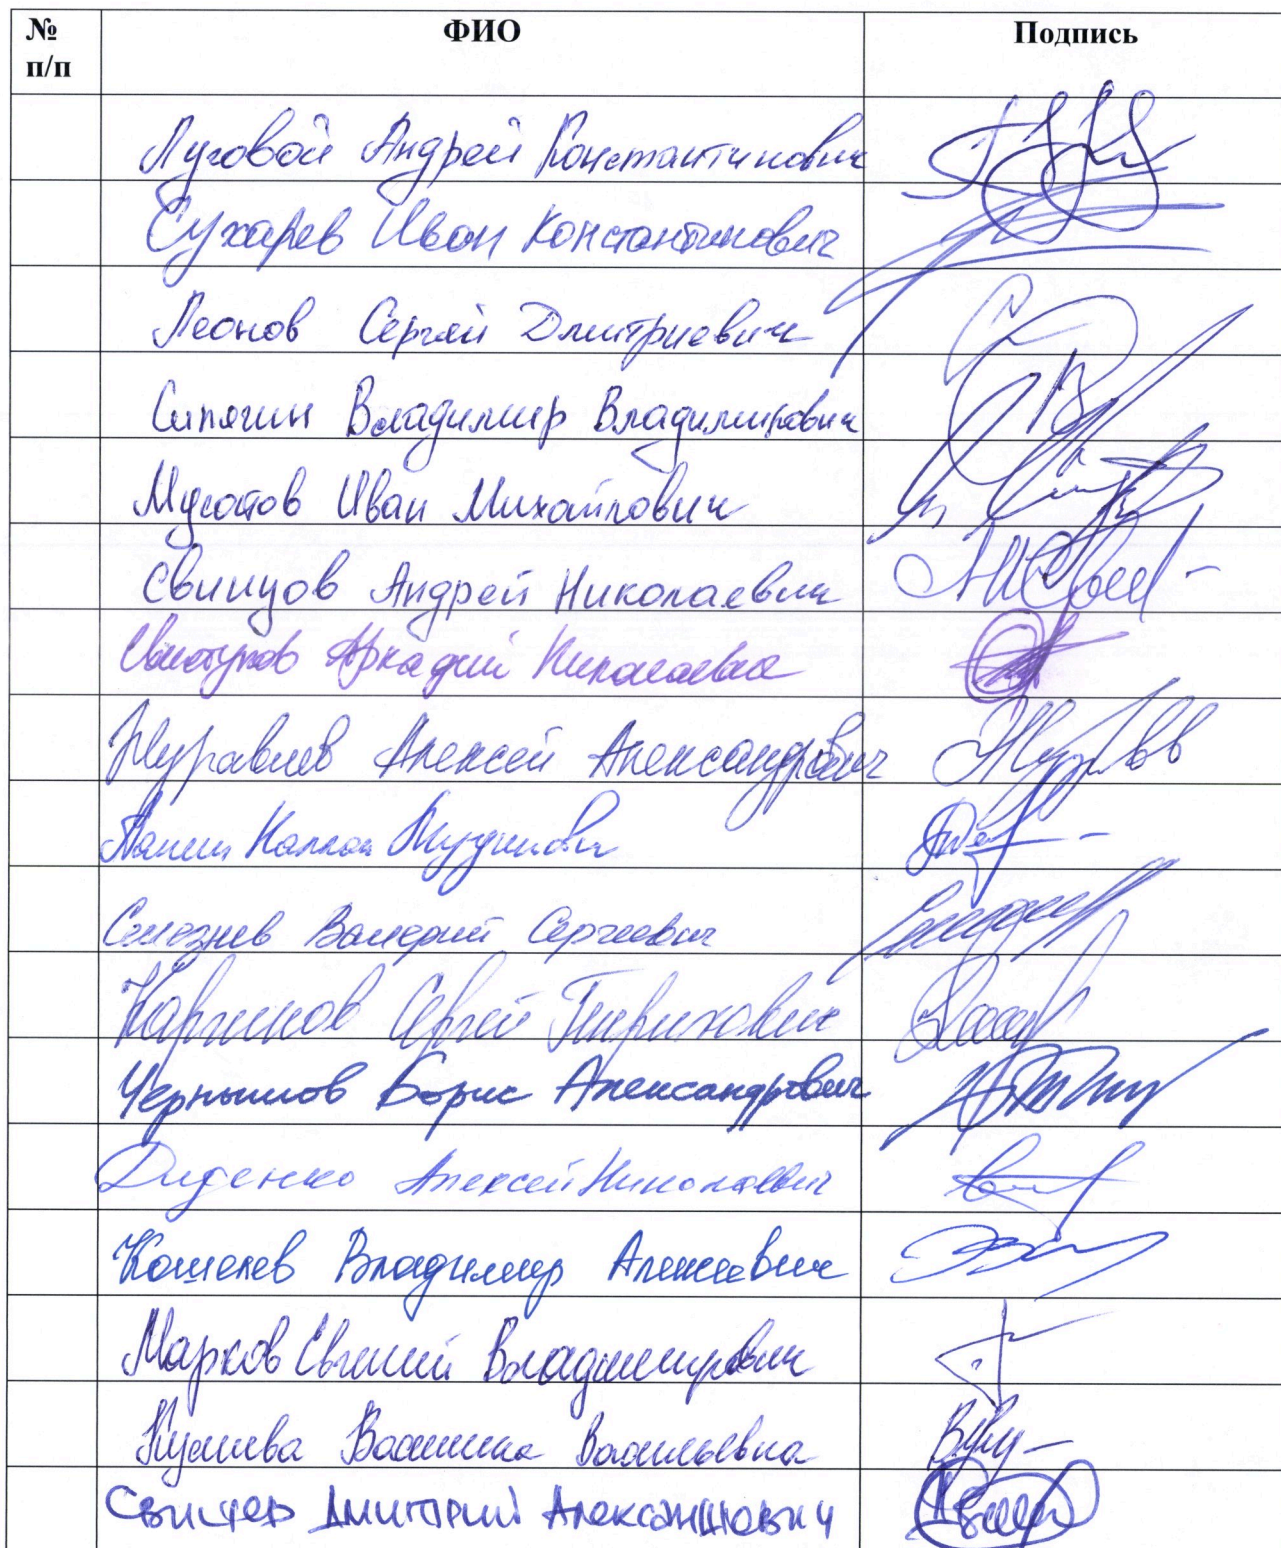 № п/п ФИО Подпись
Луговой Андрей Константинович
Сухарев Иван Константинович
Леонов Сергей Дмитриевич
Сипягин Владимир Владимирович
Мусатов Иван Михайлович
Свинцов Андрей Николаевич
Аркадий Николаевич
Журавлев Алексей Александрович
Панеш
Селезнев Валерий Сергеевич
Каргинов Сергей Генрихович
Чернышов Борис Александрович
Диденко Алексей Николаевич
Кошелев Владимир Алексеевич
Марков Евгений Владимирович
Васильевна
Свищев Дмитрий Александрович